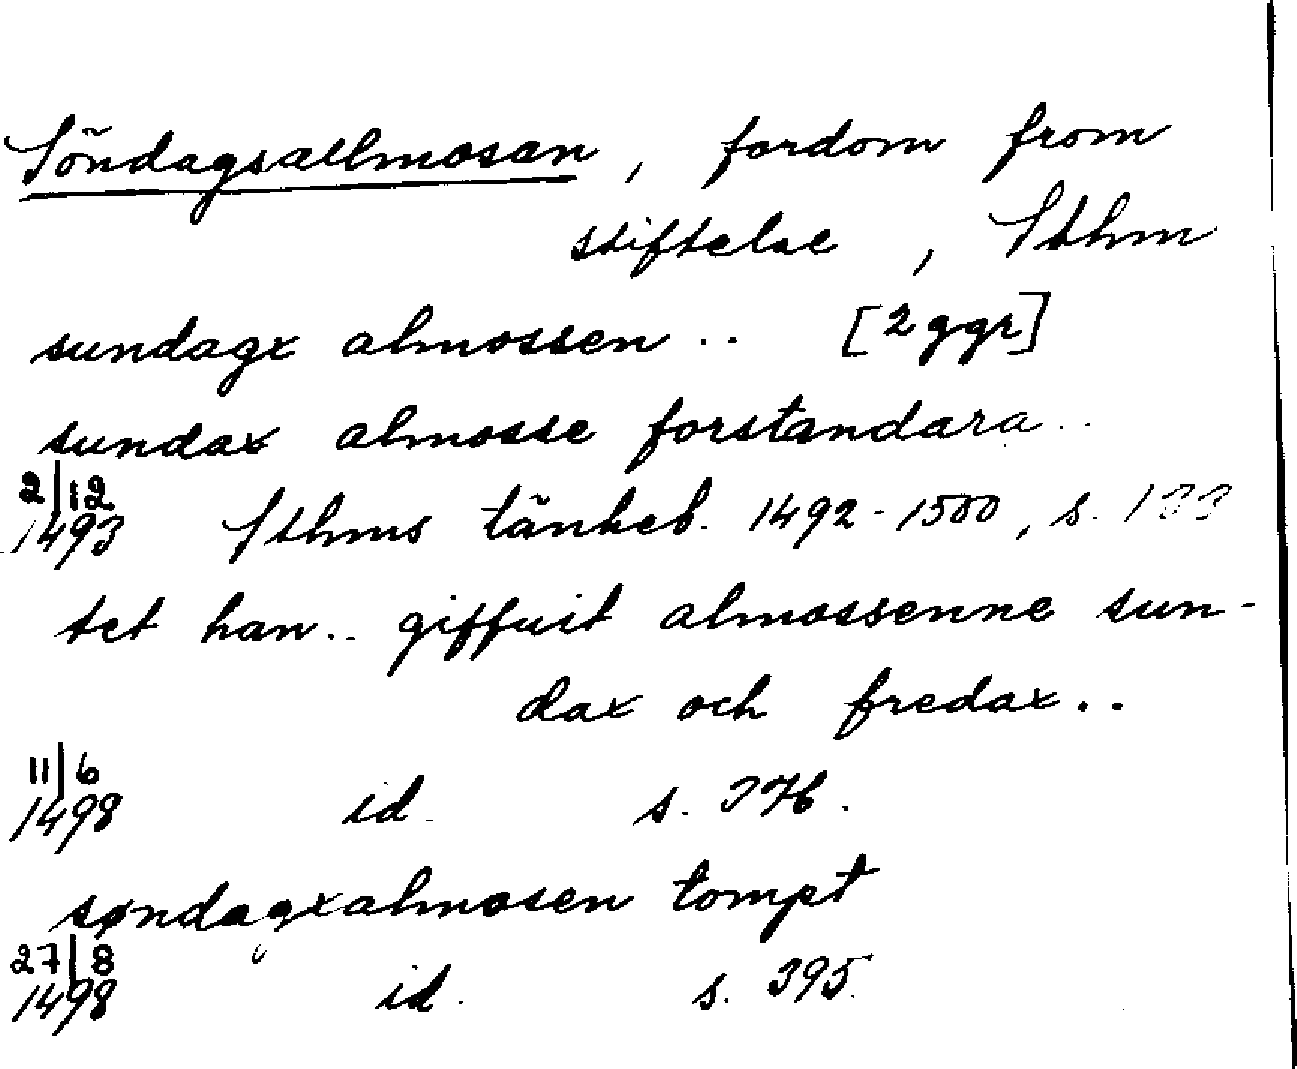 Söndagsallmosan, fordom from
stiftelse, Sthm
sundagx almossen .. [2 ggr]
sundax almosse forstandara ..
2/12 1493 Sthms tänkeb. 1492-1500, s. 133
tet han .. giffuit almossenne sun-
dax och fredax ..
11/6 1498 id. s. 376.
søndagxalmosen tompt
27/8 1498 id. s. 395.